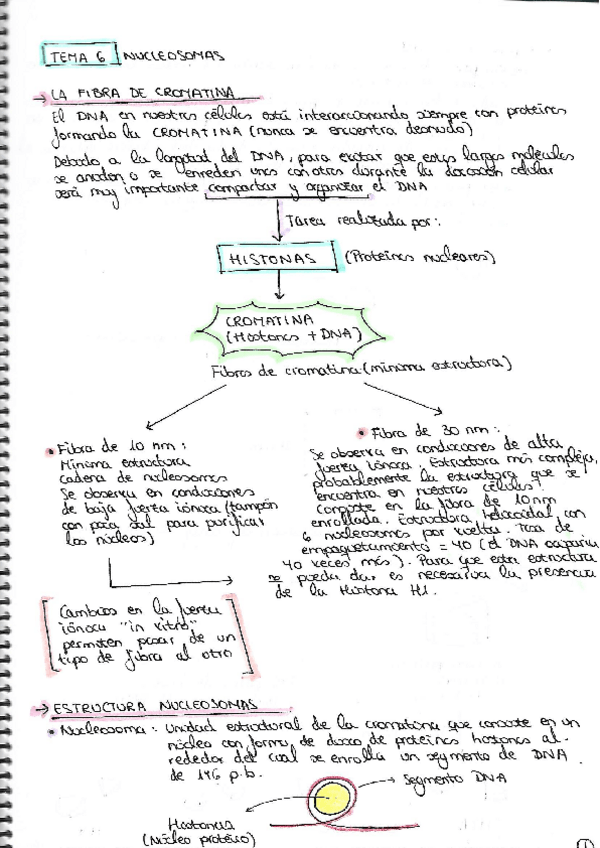 TEMA 6 NUCLEOSOMAS
→ LA FIBRA DE CROMATINA
El DNA en nuestras células está interaccionando siempre con proteínas
formando la CROMATINA (nunca se encuentra desnudo)
Debido a la longitud del DNA, para evitar que estas largas moléculas
se anuden o se enreden unas con otras durante la división celular
será muy importante compactar y organizar el DNA
Tarea realizada por:
HISTONAS (Proteínas nucleares)
CROMATINA
(Histonas + DNA)
Fibras de cromatina (mínima estructura)
• Fibra de 10 nm:
Mínima estructura
cadena de nucleosomas
Se observa en condiciones
de baja fuerza iónica (tampón
con poca sal para purificar
los núcleos)
• Fibra de 30 nm:
Se observa en condiciones de alta
fuerza iónica. Estructura más compleja,
probablemente la estructura que se
encuentra en nuestras células.
Consiste en la fibra de 10nm
enrollada. Estructura helicoidal con
6 nucleosomas por vuelta. Tasa de
empaquetamiento = 40 (el DNA ocuparía
40 veces más). Para que esta estructura
se pueda dar es necesaria la presencia
de la Histona H1.
Cambios en la fuerza
iónica "in vitro"
permiten pasar de un
tipo de fibra al otro
→ ESTRUCTURA NUCLEOSOMAS
• Nucleosoma: Unidad estructural de la cromatina que consiste en un
núcleo con forma de disco de proteínas histonas al-
rededor del cual se enrolla un segmento de DNA
de 146 p.b.
Segmento DNA
Histonas
(Núcleo protéico)
1